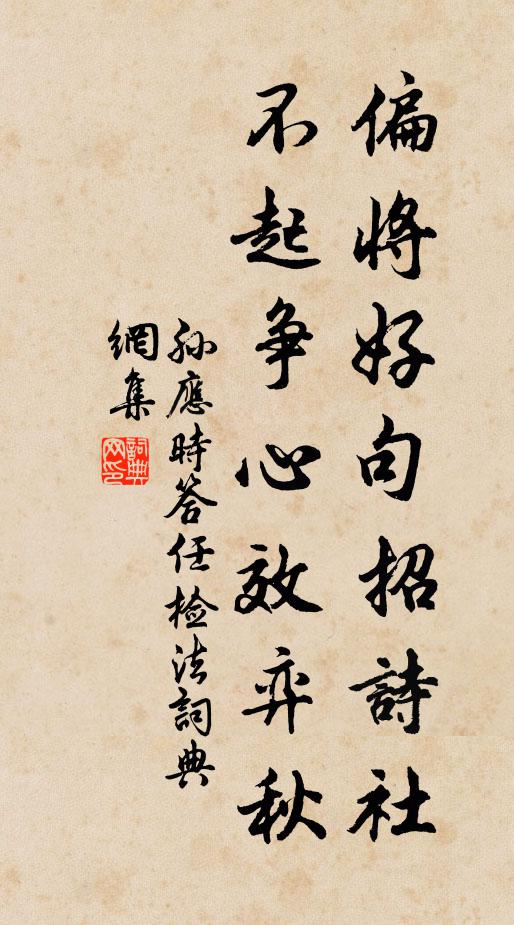 偏將好句招詩社
不起争心效弈秋
孙應時答任檢法詞典
網集
詞典
网印